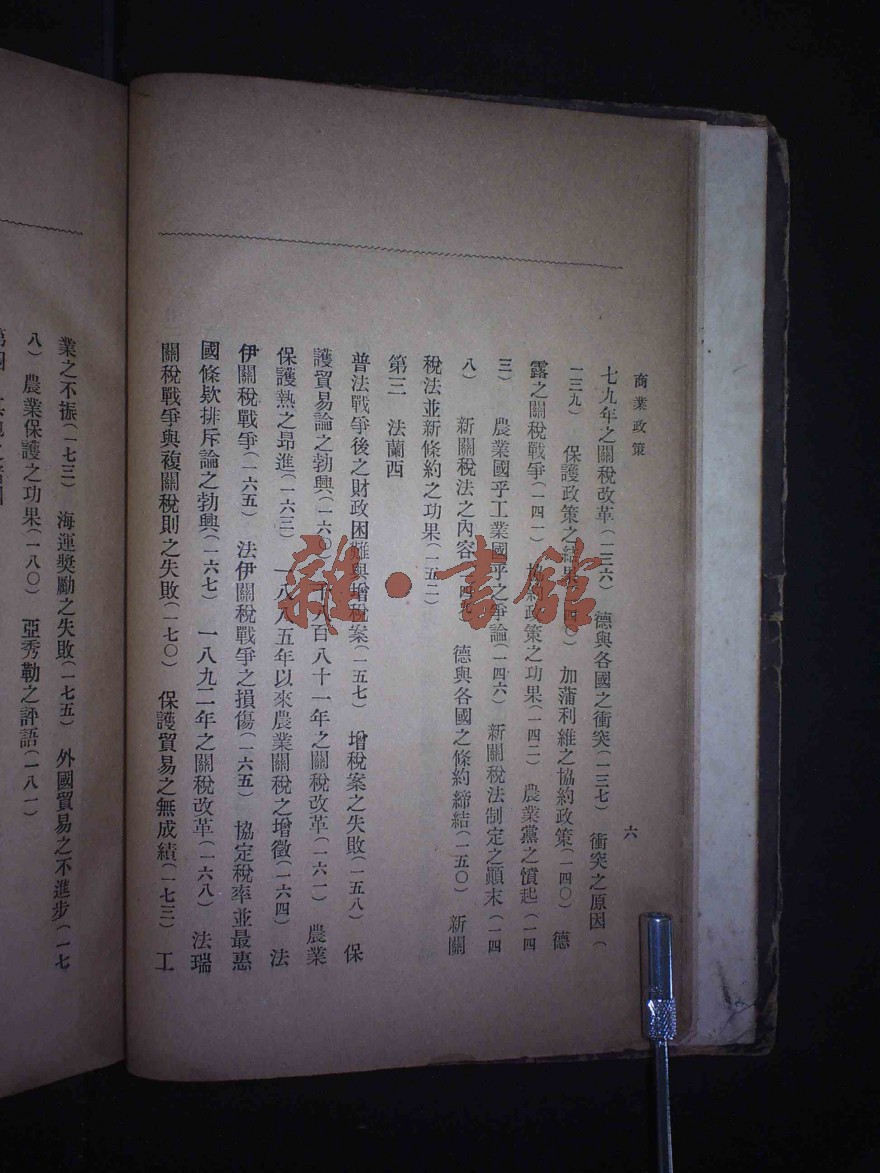 商業政策
六
七九年之關稅改革(一三六) 德與各國之衝突(一三七) 衝突之原因(
一三九) 保護政策之結果(一四〇) 加蒲利維之協約政策(一四〇) 德
露之關稅戰爭(一四一) 協約政策之功果(一四二) 農業黨之憤起(一四
三) 農業國乎工業國乎之爭論(一四六) 新關稅法制定之顚末(一四
八) 新關稅法之內容 四九 德與各國之條約締結(一五〇) 新關
稅法並新條約之功果(一五二)
第三 法蘭西
普法戰爭後之財政困難與增稅案(一五七) 增稅案之失敗(一五八) 保
護貿易論之勃興(一六〇) 千八百八十一年之關稅改革(一六一) 農業
保護熱之昂進(一六三) 一八八五年以來農業關稅之增徵(一六四) 法
伊關稅戰爭(一六五) 法伊關稅戰爭之損傷(一六五) 協定稅率並最惠
國條欵排斥論之勃興(一六七) 一八九二年之關稅改革(一六八) 法瑞
關稅戰爭與複關稅則之失敗(一七〇) 保護貿易之無成績(一七三) 工
業之不振(一七三) 海運奬勵之失敗(一七五) 外國貿易之不進步(一七
八) 農業保護之功果(一八〇) 亞秀勒之評語(一八一)
雜·書館